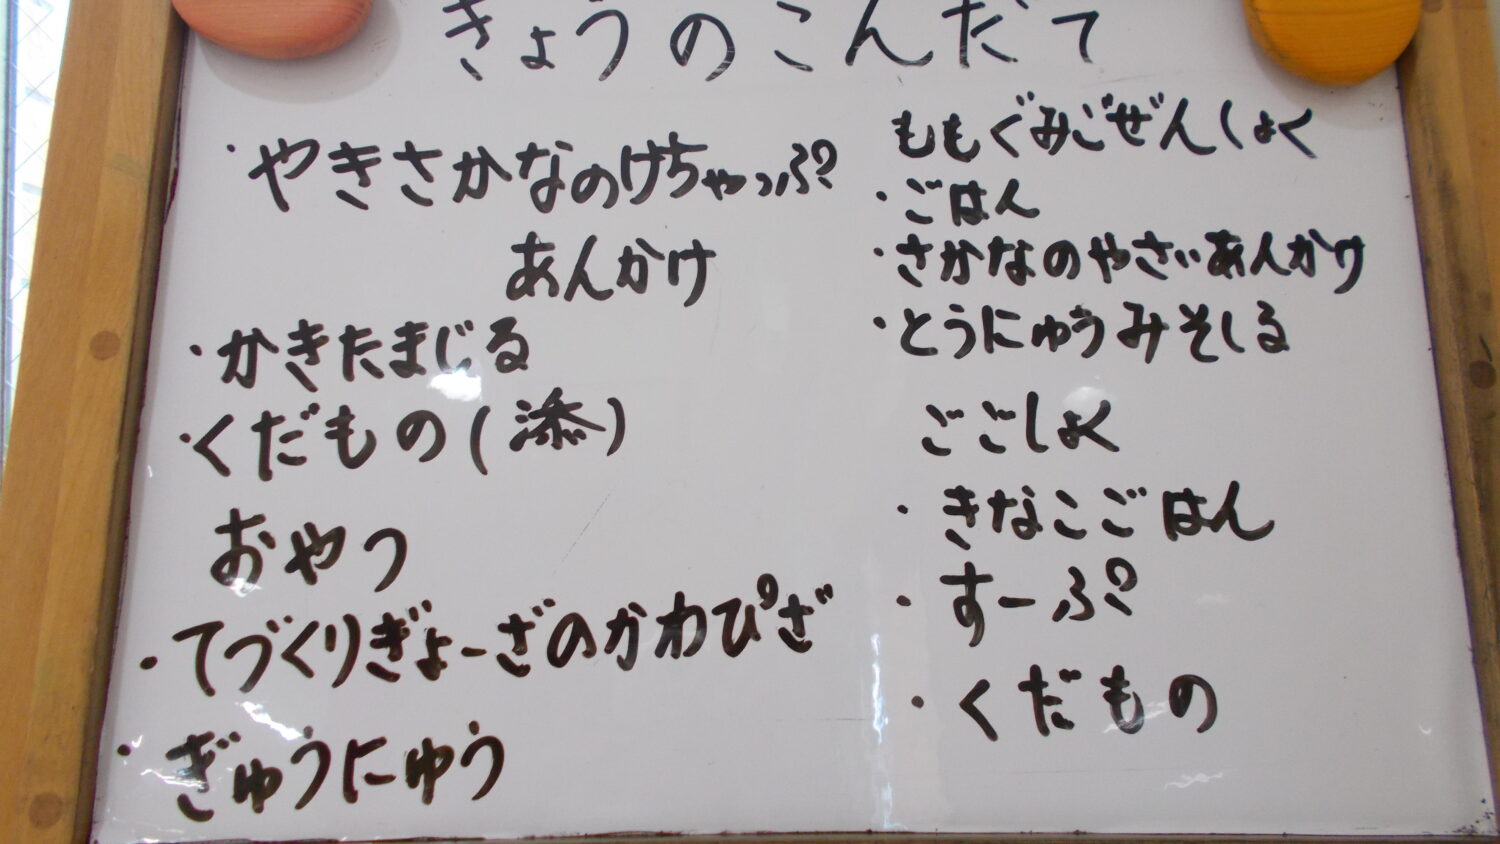 きょうのこんだて
・やきさかなのけちゃっぷ
あんかけ
・かきたまじる
・くだもの(添)
おやつ
・てづくりぎょーざのかわぴざ
・ぎゅうにゅう
ももぐみごぜんしょく
・ごはん
・さかなのやさいあんかけ
・とうにゅうみそしる
ごごしょく
・きなこごはん
・すーぷ
・くだもの